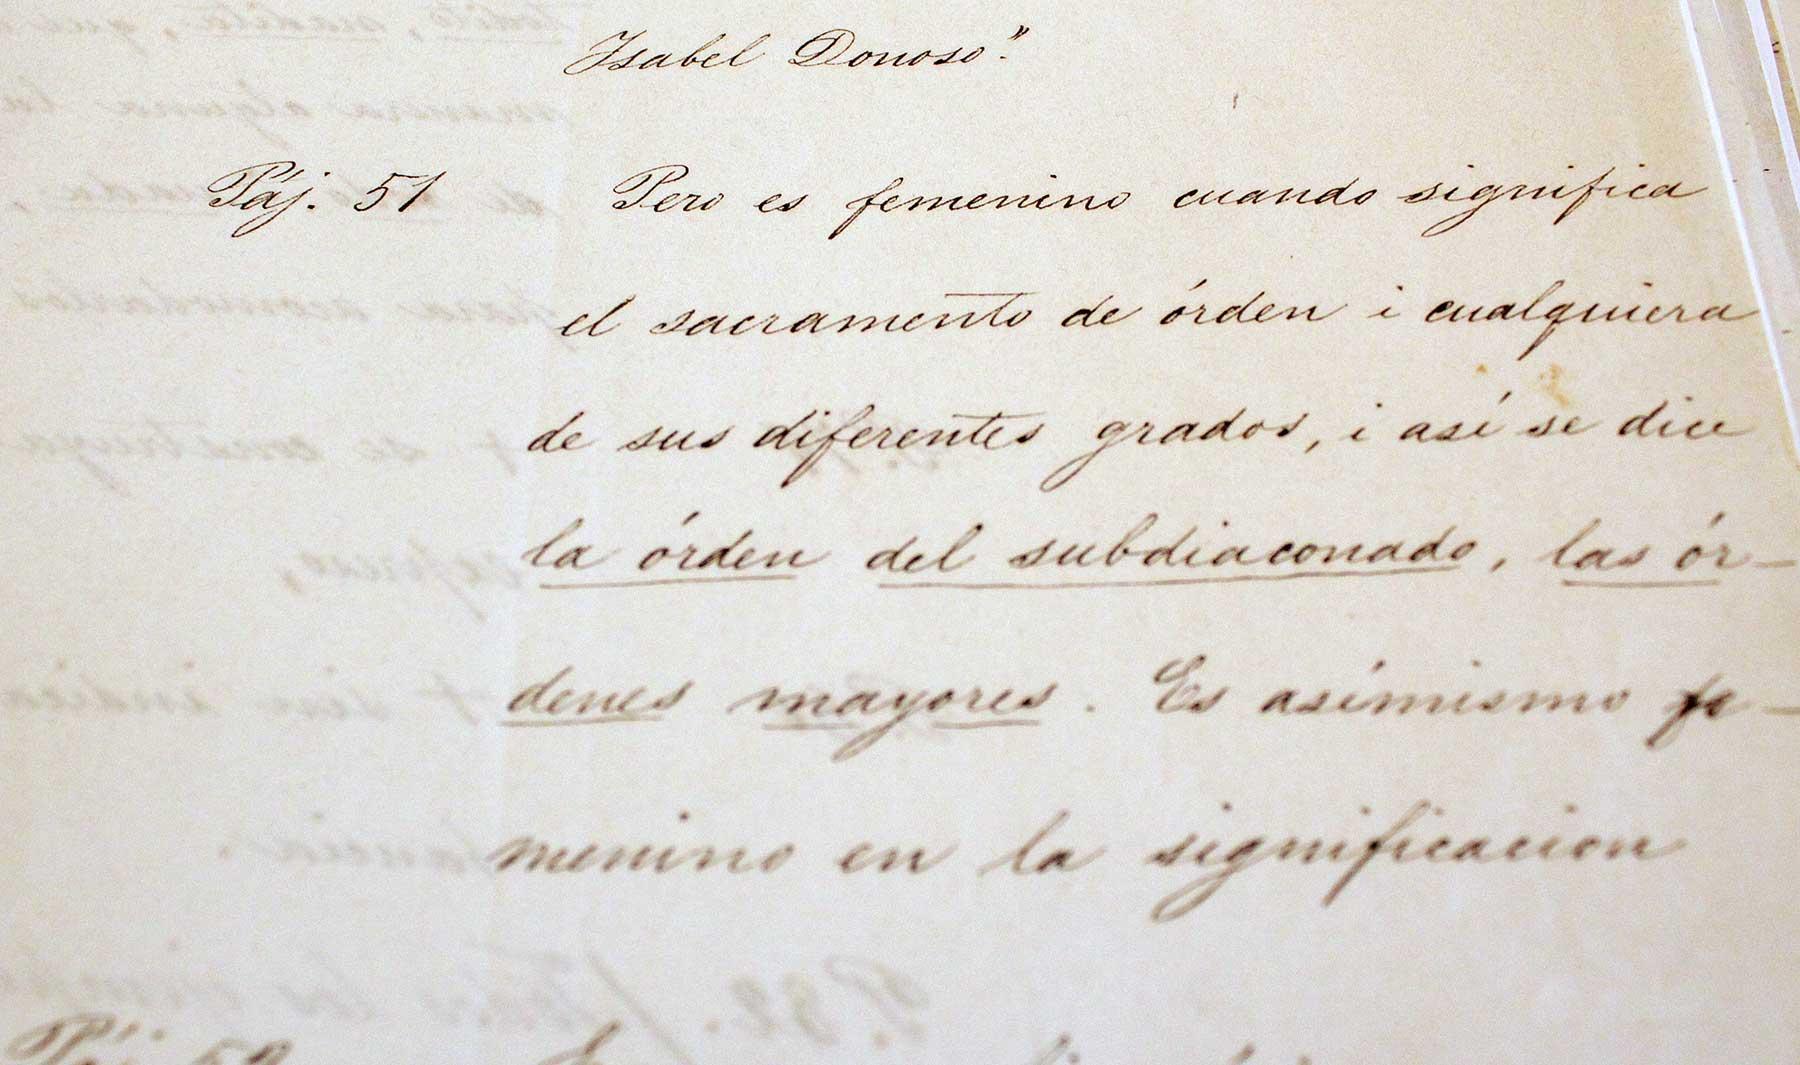 Isabel Donoso".
Páj. 51 Pero es femenino cuando significa
el sacramento de órden i cualquiera
de sus diferentes grados, i así se dice
la órden del subdiaconado, las ór-
denes mayores. Es asímismo fe-
menino en la significacion